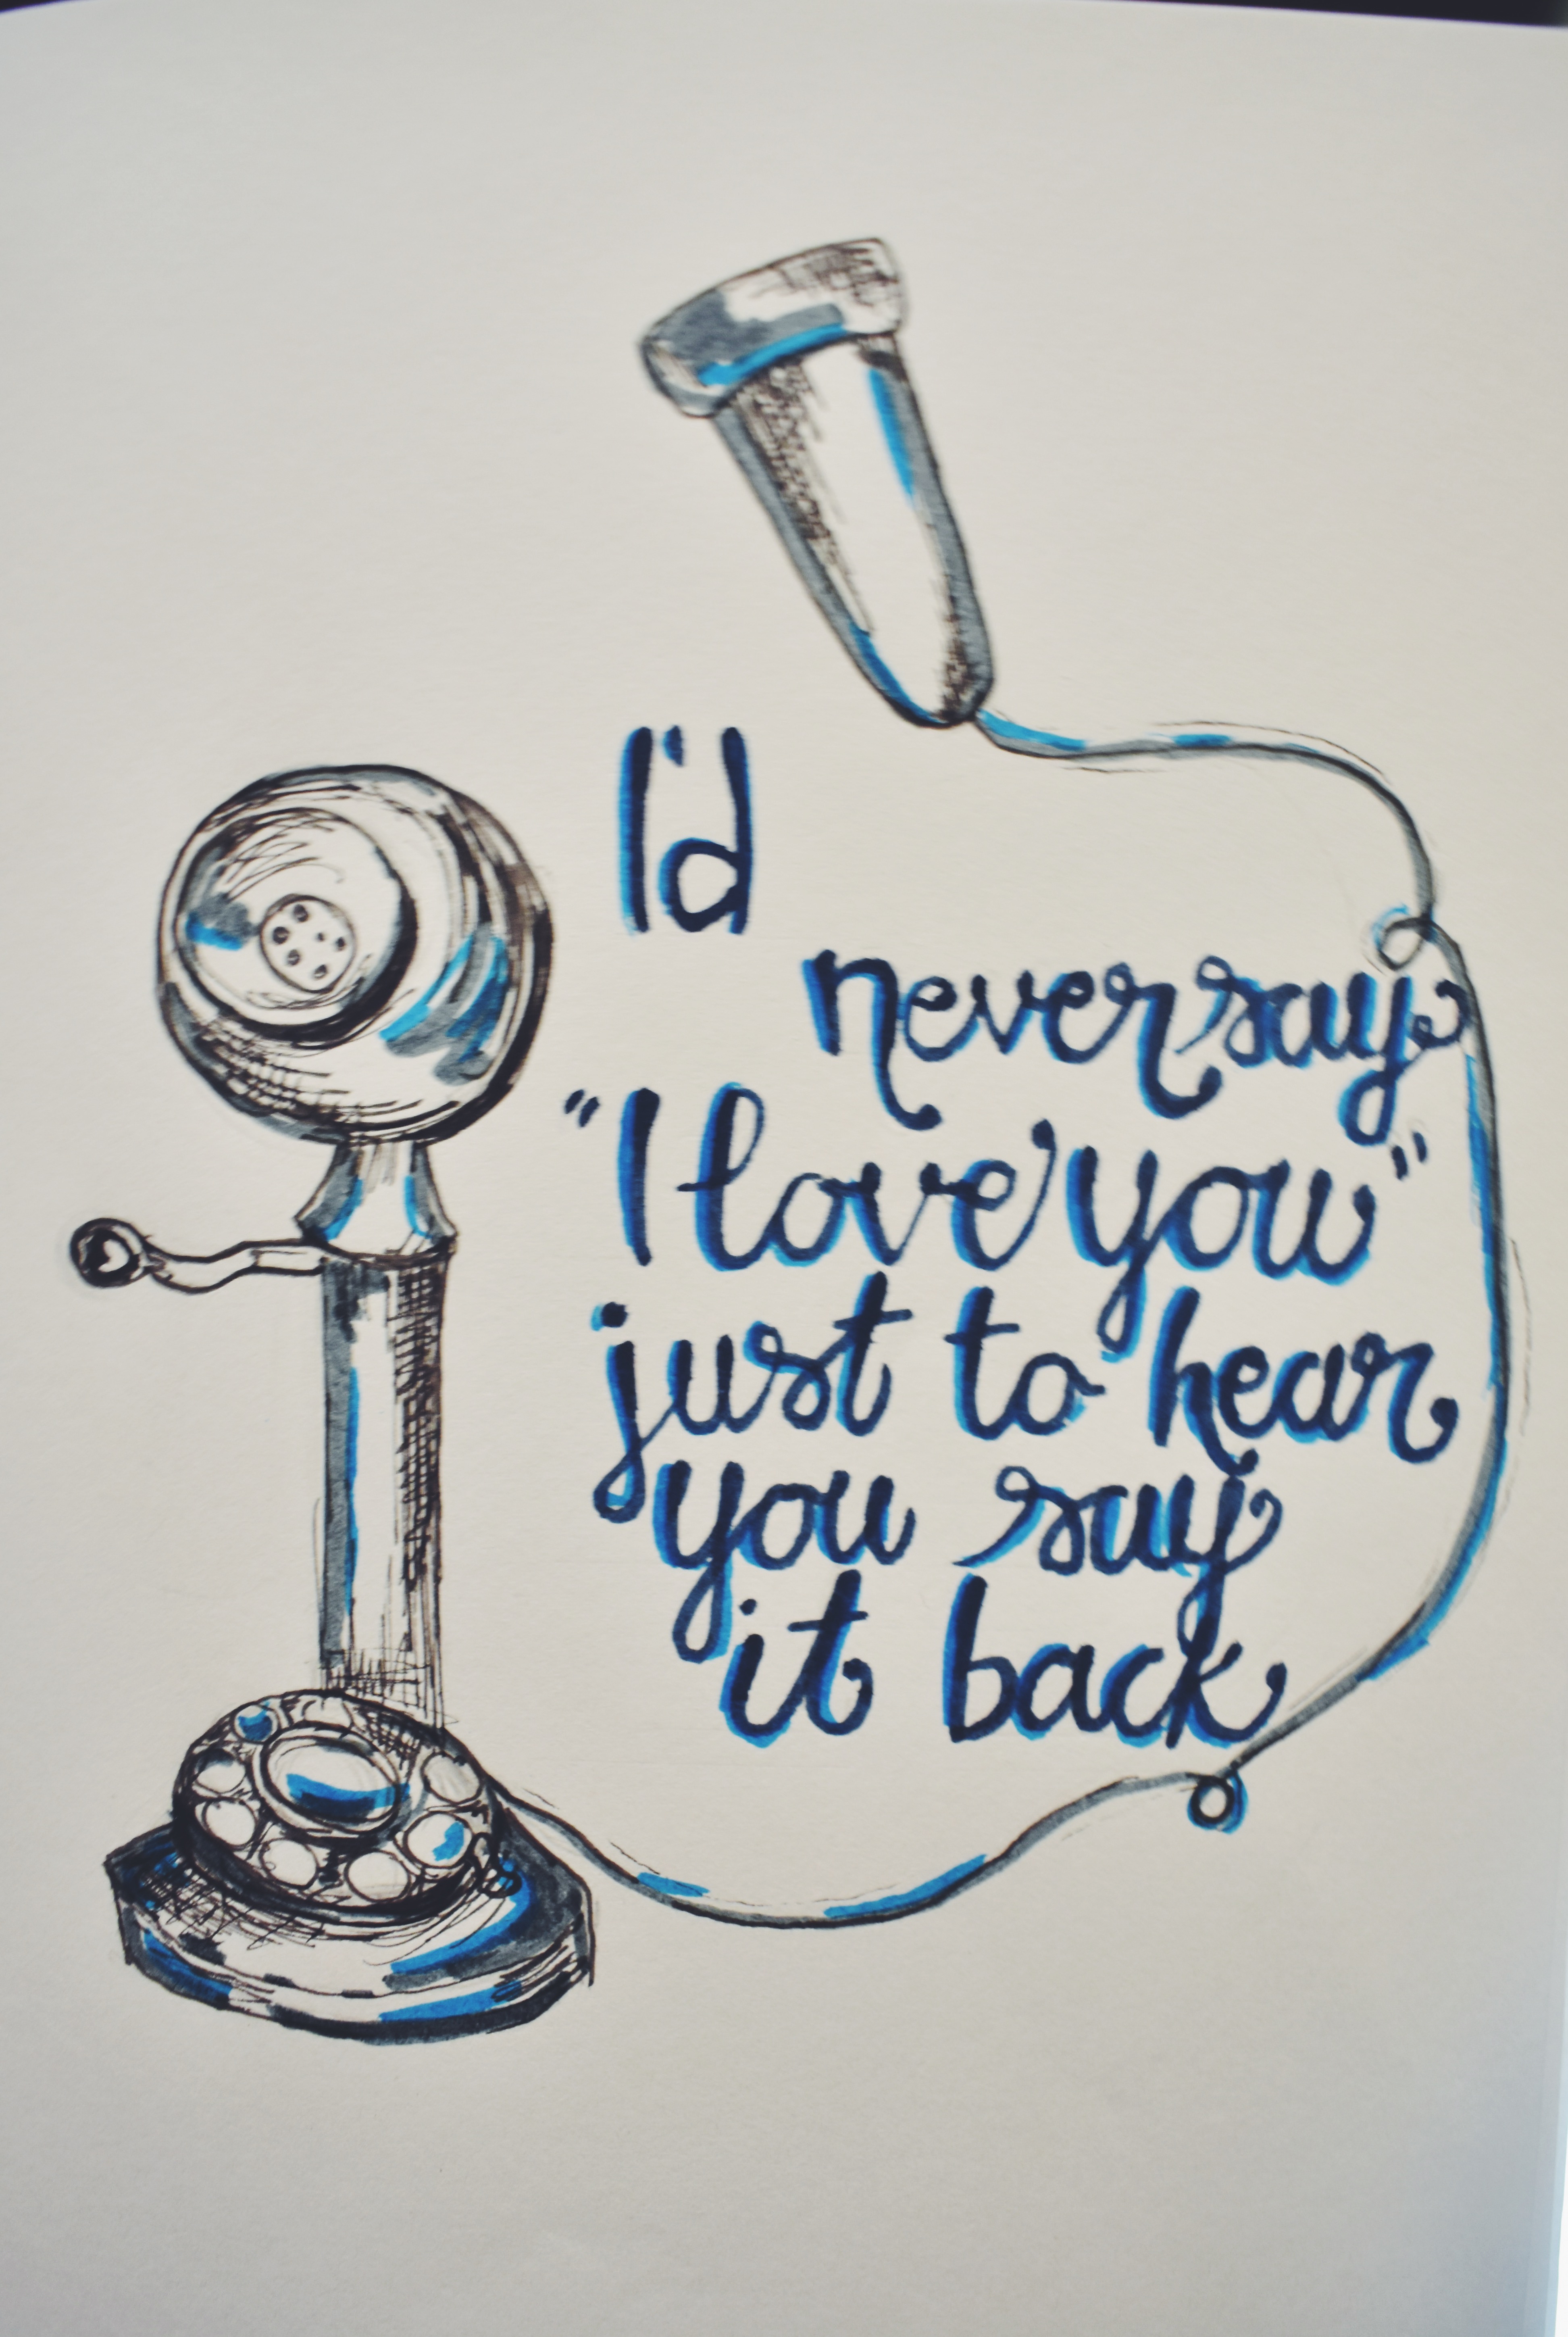 I'd
never say
"I love you"
just to hear
you say
it back